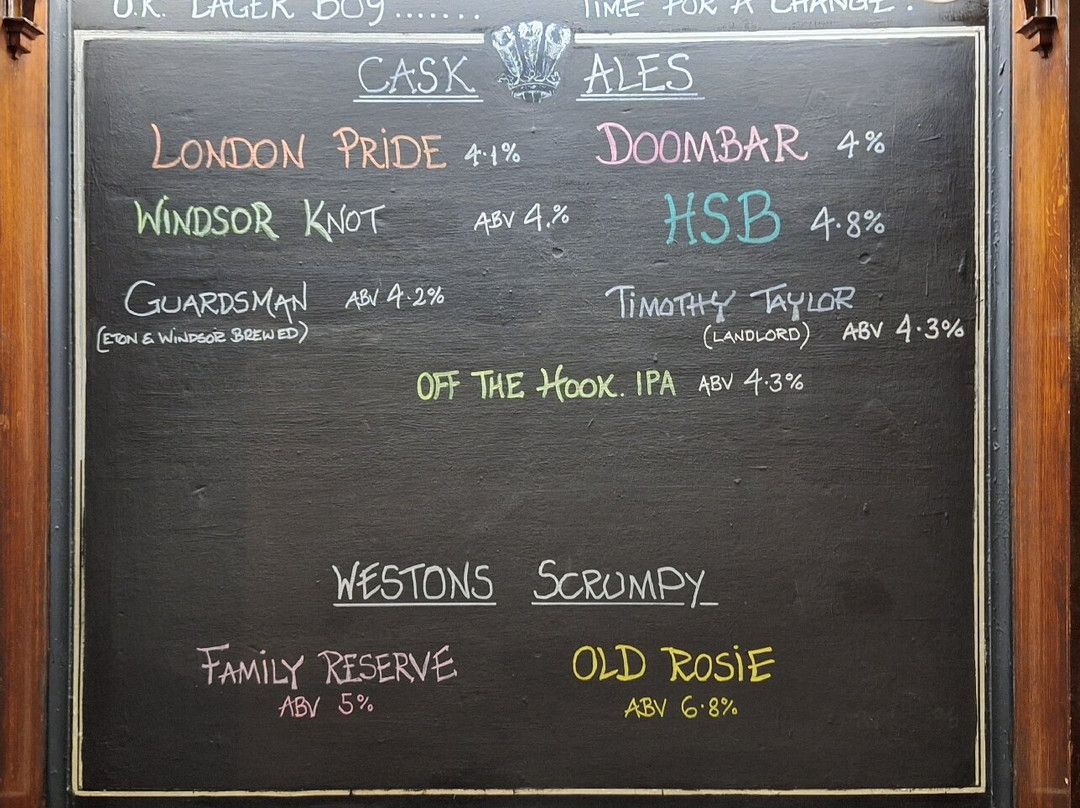 U.K. LAGER BOY....... TIME FOR A CHANGE.
CASK ALES
LONDON PRIDE 4.1% DOOMBAR 4%
WINDSOR KNOT ABV 4.% HSB 4.8%
GUARDSMAN ABV 4.2% TIMOTHY TAYLOR
(ETON & WINDSOR BREWED) (LANDLORD) ABV 4.3%
OFF THE HOOK. IPA ABV 4.3%
WESTONS SCRUMPY
FAMILY RESERVE OLD ROSIE
ABV 5% ABV 6.8%